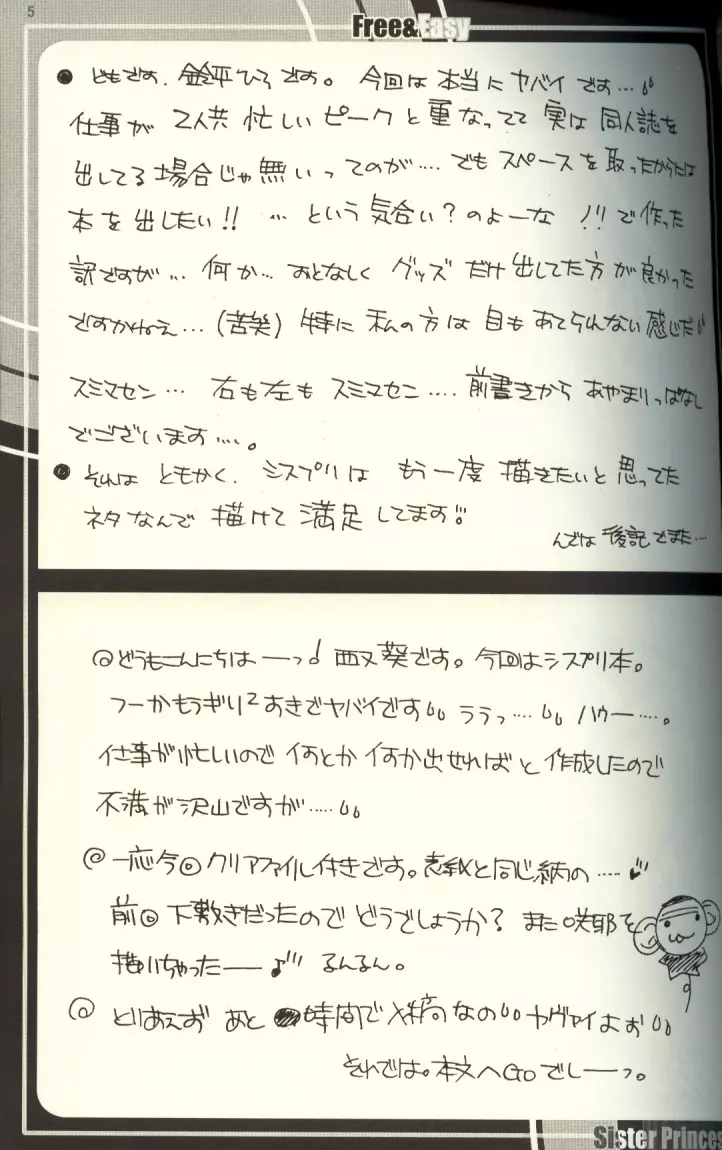 5
Free&Easy
● ども です. 鈴平ひろ です。 今回は 本当に ヤバイ です…
仕事が 2人共 忙しい ピークと 重なってて 実は 同人誌を
出してる 場合じゃ 無いってのが…. でも スペースを 取ったからには
本を 出したい!! … という 気合い?のよーな ﾉﾘで 作った
訳ですが… 何か… おとなしく グッズ だけ 出してた方が 良かった
ですかねぇ…(苦笑) 特に 私の方は 目も あてられない 感じだ
スミマセン… 右も左も スミマセン…. 前書きから あやまりっぱなし
でございます…。
● それは ともかく. シスプリは もう一度 描きたいと 思ってた
ネタなんで 描けて 満足 してます!!
んでは 後記でまた…
@どうもこんにちはーっ♪ 西又葵です。今回はシスプリ本。
つーかもうギリ2あきでヤバイです ううっ…. ハウー….。
仕事が忙しいので 何とか 何か出せればと 作成したので
不満が沢山ですが…..
@一応今回クリアファイル付きです。表紙と同じ柄の….
前回下敷きだったので どうでしょうか? また咲耶を
描いちゃったー♪ るんるん。
@とりあえず あと 時間で入稿なの ヤヴァイよお
それでは。本文へGoでしーっ。
Sister Princes